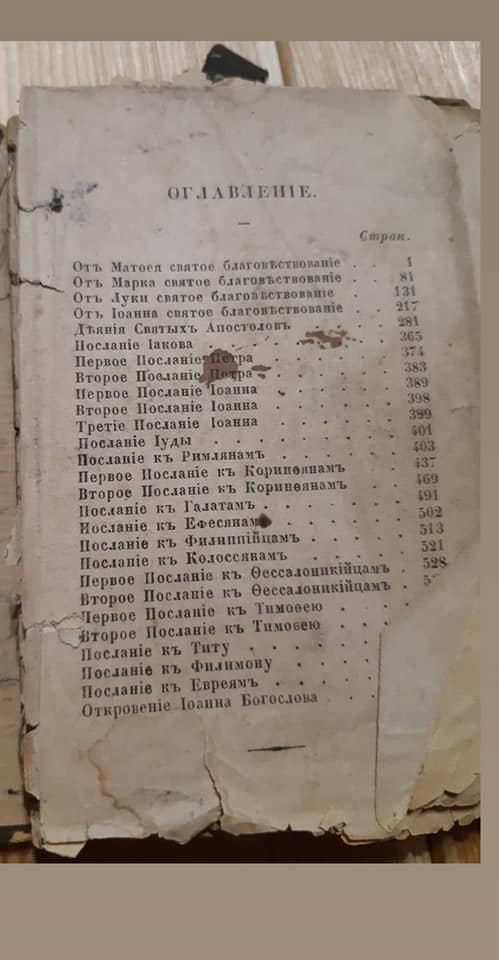 ОГЛАВЛЕНІЕ.
Стран.
Отъ Матѳея святое благовѣствованіе . . 1
Отъ Марка святое благовѣствованіе . . 81
Отъ Луки святое благовѣствованіе . . 131
Отъ Іоанна святое благовѣствованіе . . 217
Дѣянія Святыхъ Апостоловъ . . . . . 281
Посланіе Іакова . . . . . . . . 365
Первое Посланіе Петра . . . . . . 374
Второе Посланіе Петра . . . . . . 383
Первое Посланіе Іоанна . . . . . . 389
Второе Посланіе Іоанна . . . . . . 398
Третіе Посланіе Іоанна . . . . . . 399
Посланіе Іуды . . . . . . . . 401
Посланіе къ Римлянамъ . . . . . . 403
Первое Посланіе къ Коринѳянамъ . . . 437
Второе Посланіе къ Коринѳянамъ . . . 469
Посланіе къ Галатамъ . . . . . . 491
Посланіе къ Ефесянамъ . . . . . . 502
Посланіе къ Филиппійцамъ . . . . . 513
Посланіе къ Колоссянамъ . . . . . 521
Первое Посланіе къ Ѳессалоникійцамъ . 528
Второе Посланіе къ Ѳессалоникійцамъ .
Первое Посланіе къ Тимоѳею . . . .
Второе Посланіе къ Тимоѳею . . . .
Посланіе къ Титу . . . . . .
Посланіе къ Филимону . . . . .
Посланіе къ Евреямъ . . . . . .
Откровеніе Іоанна Богослова . .